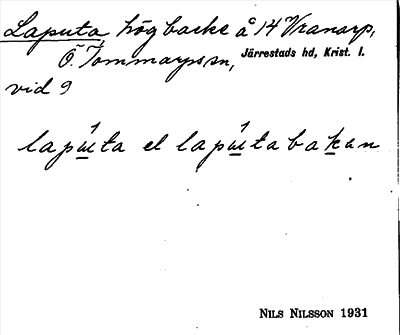 Laputa, hög backe å 14 Vranarp,
Ö. Tommarps sn, Järrestads hd, Krist. l.
vid 9
lapúta el lapútabakan
NILS NILSSON 1931